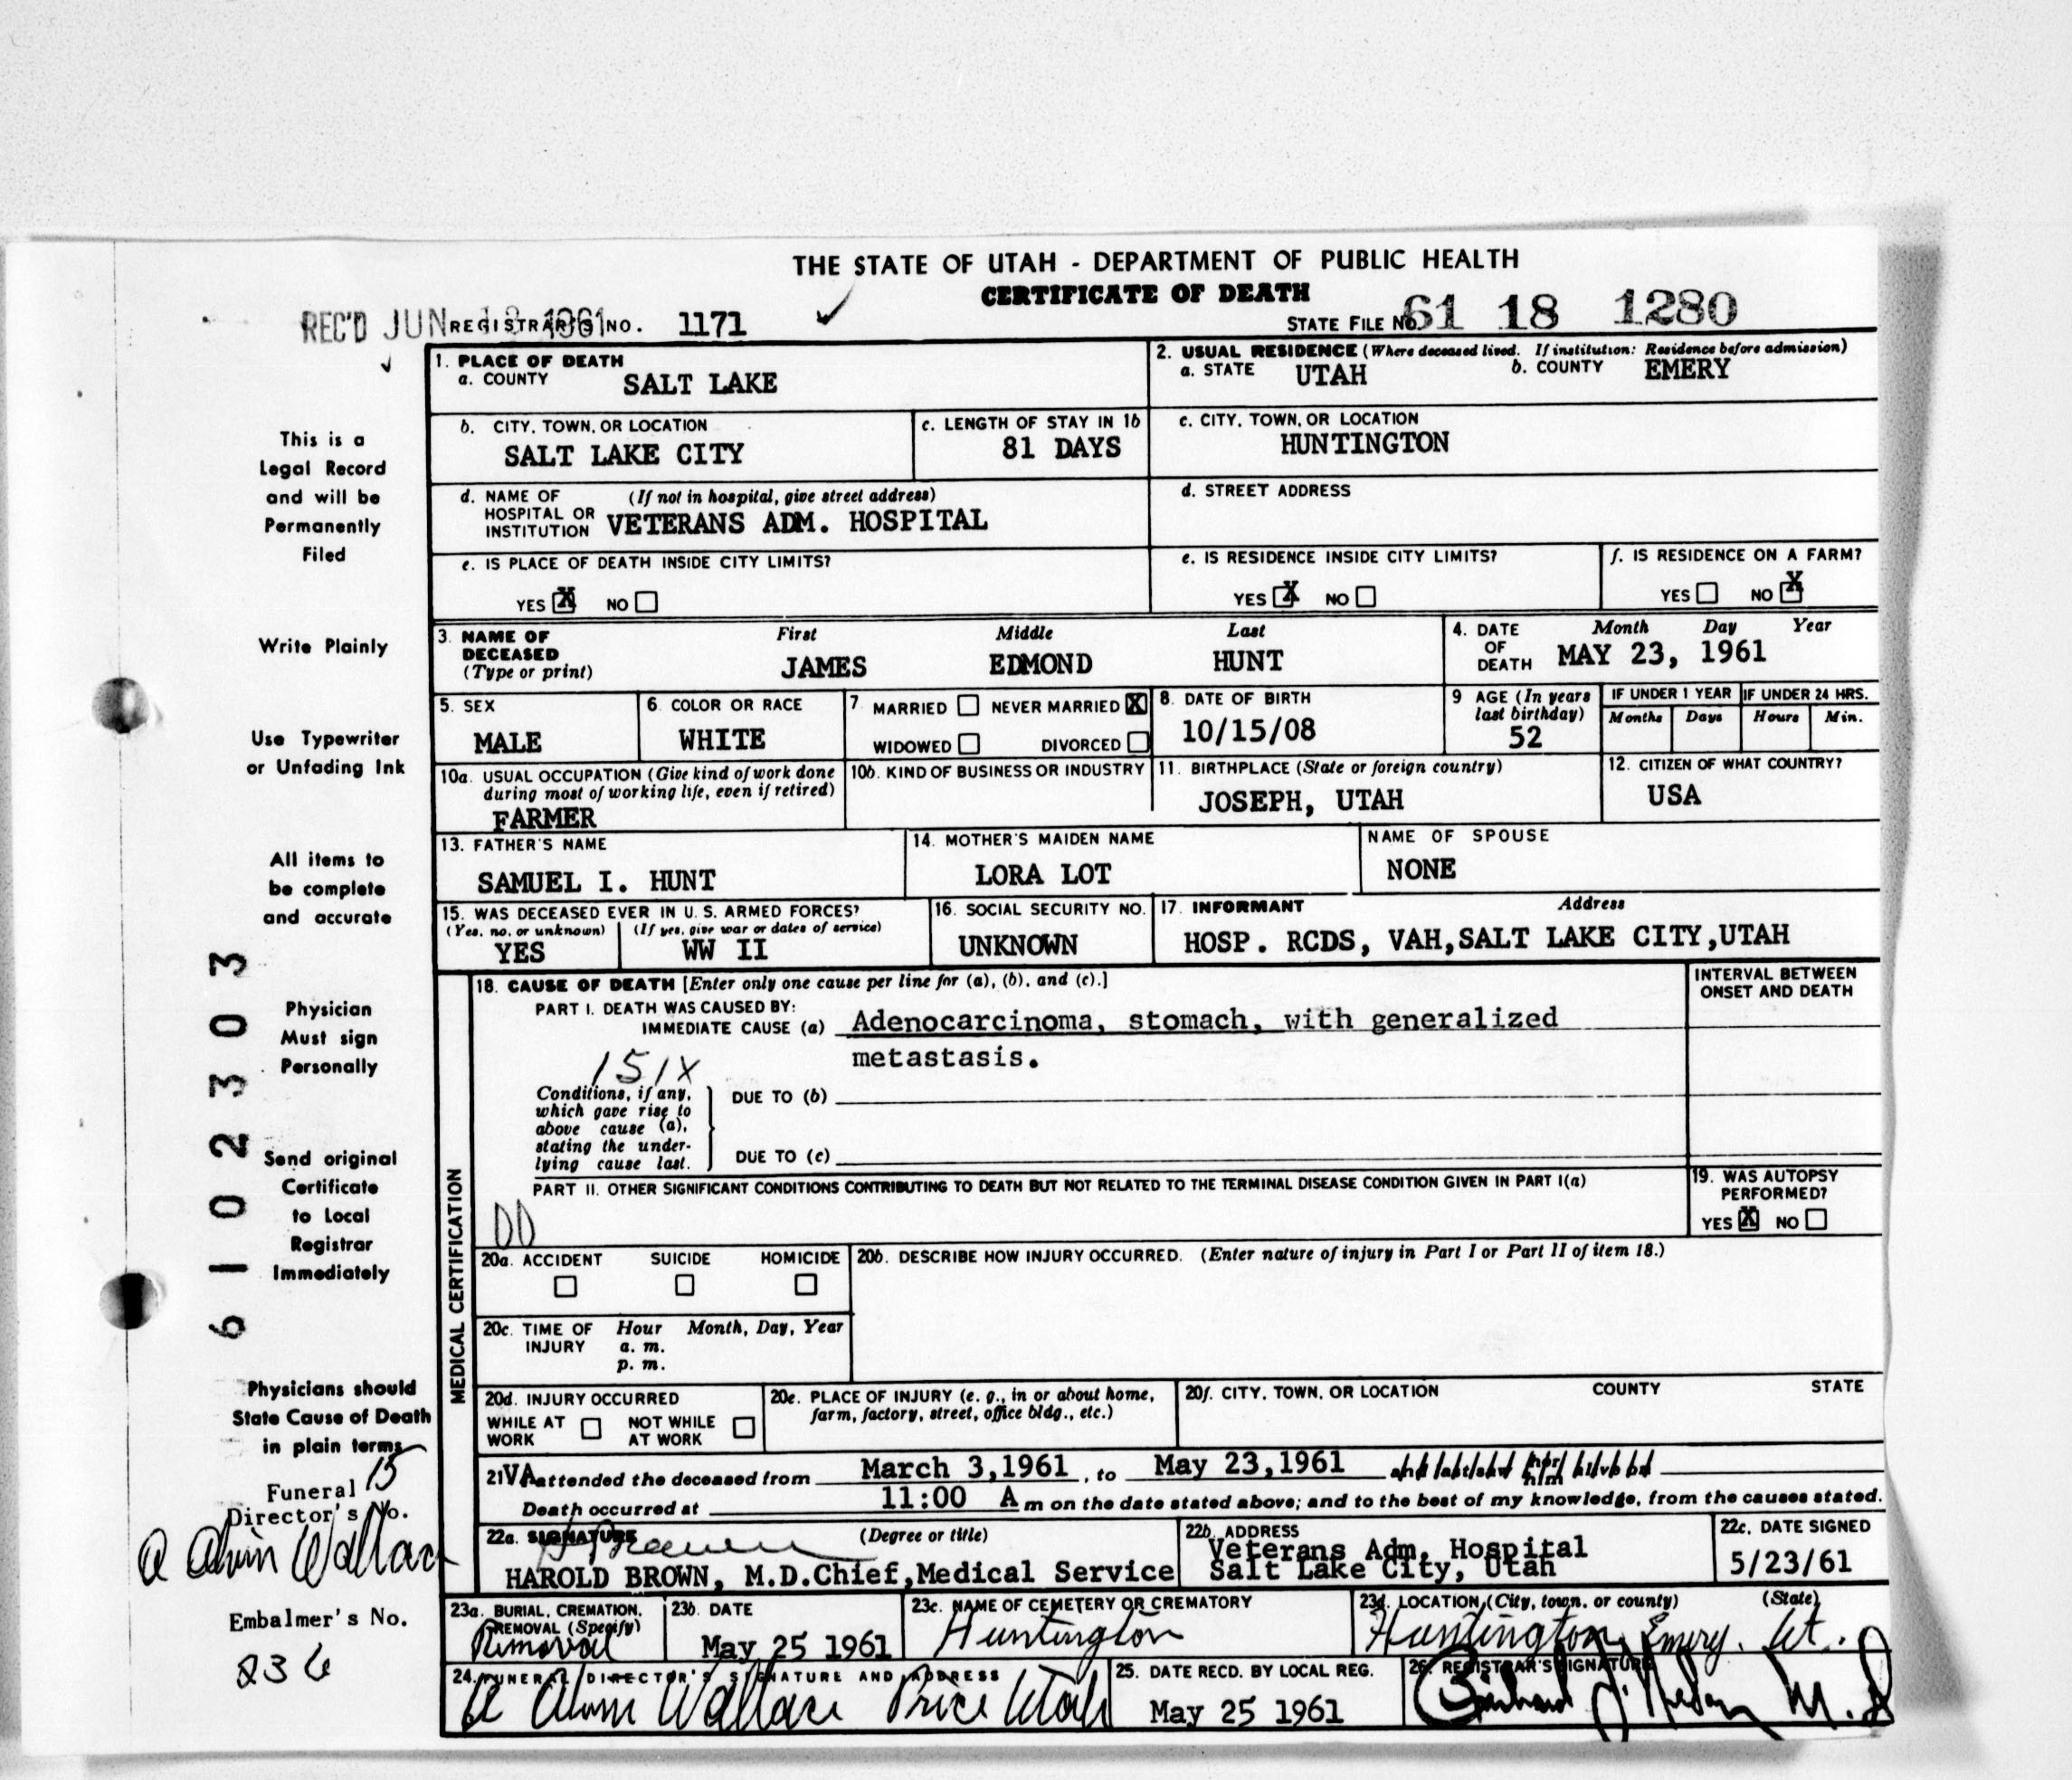 THE STATE OF UTAH - DEPARTMENT OF PUBLIC HEALTH
CERTIFICATE OF DEATH
REC'D JUN 1961 REGISTRAR'S NO. 1171 STATE FILE NO. 61 18 1280
1. PLACE OF DEATH
a. COUNTY SALT LAKE
2. USUAL RESIDENCE (Where deceased lived. If institution: Residence before admission)
a. STATE UTAH b. COUNTY EMERY
b. CITY, TOWN, OR LOCATION
SALT LAKE CITY
c. LENGTH OF STAY IN 1b
81 DAYS
c. CITY, TOWN, OR LOCATION
HUNTINGTON
d. NAME OF HOSPITAL OR INSTITUTION (If not in hospital, give street address)
VETERANS ADM. HOSPITAL
d. STREET ADDRESS
e. IS PLACE OF DEATH INSIDE CITY LIMITS?
YES X NO
e. IS RESIDENCE INSIDE CITY LIMITS?
YES X NO
f. IS RESIDENCE ON A FARM?
YES NO X
3. NAME OF DECEASED (Type or print)
First Middle Last
JAMES EDMOND HUNT
4. DATE OF DEATH Month Day Year
MAY 23, 1961
5. SEX
MALE
6. COLOR OR RACE
WHITE
7. MARRIED NEVER MARRIED X
WIDOWED DIVORCED
8. DATE OF BIRTH
10/15/08
9 AGE (In years last birthday)
52
IF UNDER 1 YEAR IF UNDER 24 HRS.
Months Days Hours Min.
10a. USUAL OCCUPATION (Give kind of work done during most of working life, even if retired)
FARMER
10b. KIND OF BUSINESS OR INDUSTRY
11. BIRTHPLACE (State or foreign country)
JOSEPH, UTAH
12. CITIZEN OF WHAT COUNTRY?
USA
13. FATHER'S NAME
SAMUEL I. HUNT
14. MOTHER'S MAIDEN NAME
LORA LOT
NAME OF SPOUSE
NONE
15. WAS DECEASED EVER IN U. S. ARMED FORCES?
(Yes, no, or unknown) (If yes, give war or dates of service)
YES WW II
16. SOCIAL SECURITY NO.
UNKNOWN
17. INFORMANT Address
HOSP. RCDS, VAH,SALT LAKE CITY,UTAH
MEDICAL CERTIFICATION
18. CAUSE OF DEATH [Enter only one cause per line for (a), (b), and (c).]
INTERVAL BETWEEN ONSET AND DEATH
PART I. DEATH WAS CAUSED BY:
IMMEDIATE CAUSE (a) Adenocarcinoma, stomach, with generalized
metastasis.
151X
Conditions, if any, which gave rise to above cause (a), stating the underlying cause last.
DUE TO (b)
DUE TO (c)
PART II. OTHER SIGNIFICANT CONDITIONS CONTRIBUTING TO DEATH BUT NOT RELATED TO THE TERMINAL DISEASE CONDITION GIVEN IN PART I(a)
19. WAS AUTOPSY PERFORMED?
YES X NO
20a. ACCIDENT SUICIDE HOMICIDE
20b. DESCRIBE HOW INJURY OCCURRED. (Enter nature of injury in Part I or Part II of item 18.)
20c. TIME OF INJURY Hour Month, Day, Year
a. m.
p. m.
20d. INJURY OCCURRED
WHILE AT WORK NOT WHILE AT WORK
20e. PLACE OF INJURY (e. g., in or about home, farm, factory, street, office bldg., etc.)
20f. CITY, TOWN, OR LOCATION COUNTY STATE
21 VA attended the deceased from March 3,1961, to May 23,1961
Death occurred at 11:00 A m on the date stated above; and to the best of my knowledge, from the causes stated.
22a. SIGNATURE (Degree or title)
HAROLD BROWN, M.D.Chief,Medical Service
22b. ADDRESS
Veterans Adm. Hospital
Salt Lake City, Utah
22c. DATE SIGNED
5/23/61
23a. BURIAL, CREMATION, REMOVAL (Specify)
Removal
23b. DATE
May 25 1961
23c. NAME OF CEMETERY OR CREMATORY
Huntington
23d. LOCATION (City, town, or county) (State)
Huntington, Emery. Ut.
24. FUNERAL DIRECTOR'S SIGNATURE AND ADDRESS
A Alvin Wallace Price Utah
25. DATE RECD. BY LOCAL REG.
May 25 1961
26. REGISTRAR'S SIGNATURE
M.D
This is a
Legal Record
and will be
Permanently
Filed
Write Plainly
Use Typewriter
or Unfading Ink
All items to
be complete
and accurate
Physician
Must sign
Personally
Send original
Certificate
to Local
Registrar
Immediately
Physicians should
State Cause of Death
in plain terms
Funeral 15
Director's No.
A Alvin Wallace
Embalmer's No.
236
6102303